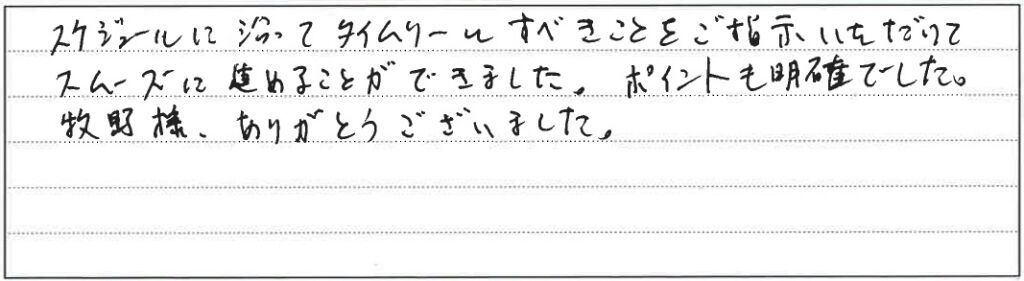 スケジュールに沿ってタイムリーにすべきことをご指示いただけて
スムーズに進めることができました。ポイントも明確でした。
牧野様、ありがとうございました。